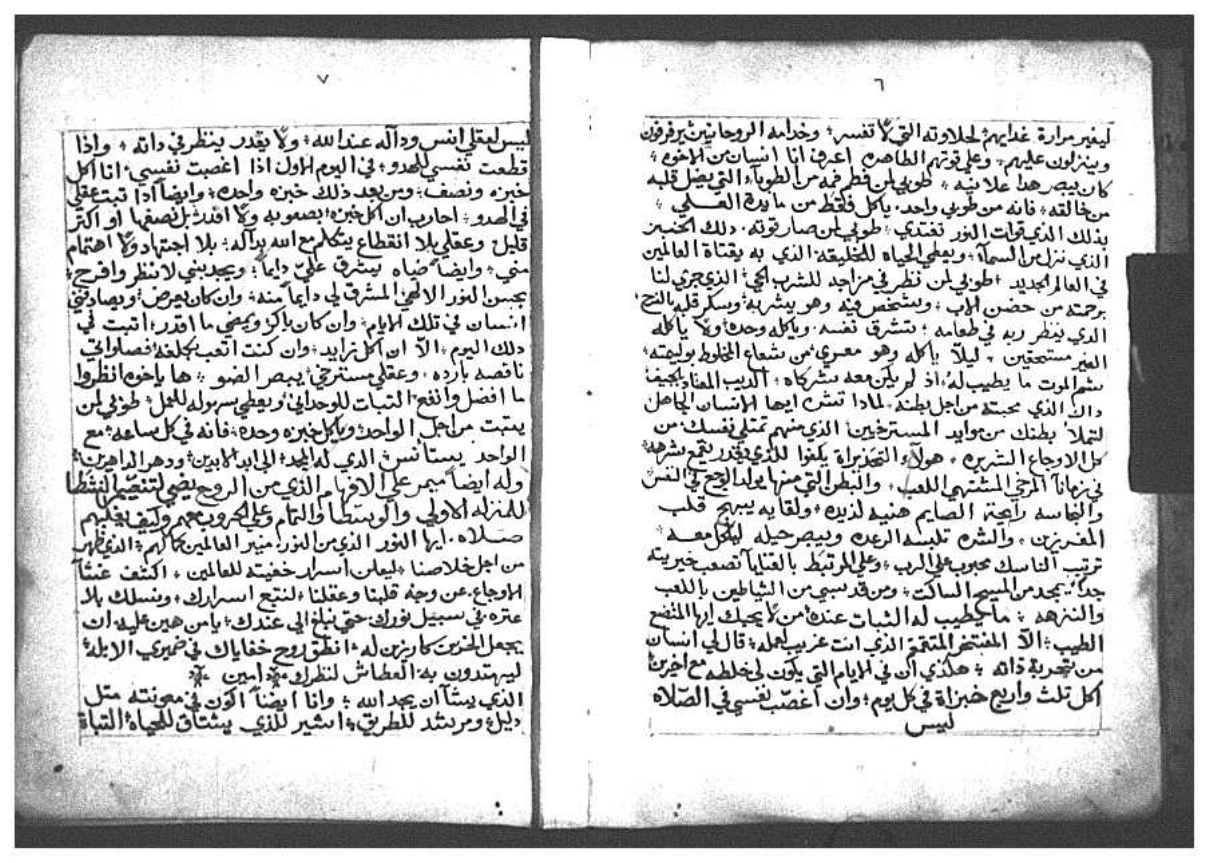 ٦
ليغير مرارة غدايهم لحلاوته التي لا تفسر؛ وخدامه الروحانيين يرفرفون
وينزلون عليهم؛ وعلى قوتهم الطاهره اعرف انا انسان من الاخوه؛
كان يبصر هدا علانيه؛ طوبي لمن فطم فمه من الطوباء التي يضل قلبه
من خالقه؛ فانه من طوبي واحد. ياكل فقط من مايدة العلي؛
بذلك الذي قوات النور تغتدي؛ طوبي لمن صار قوته. دلك الخبز
الذي نزل من السمآء؛ ويعطي الحياه للخليقه الذي به يقتاة العالمين
في العالم الجديد؛ طوبي لمن نظر في مزاجه للشرب الحي؛ الذي جري لنا
برحمته من حضن الاب؛ وشخص فيه وهو يشربه وسكر قلبه بالنح؛
الدي ينظر ربه في طعامه؛ تشرق نفسه. وياكله وحده ولا ياكله
الغير مستحقين؛ ليلا ياكله وهو معري من شعاع الخلوط بوليمته؛
سم الموت ما يطيب له؛ اذ لم يكن معه شركاه؛ الديب المعتاد بجيف
داك الذي محبته من اجل بطنه. لمادا تشره ايها الانسان الجاهل
لتملا بطنك من موايد المسترخيين؛ الذي منهم تمتلي نفسك من
كل الاوجاع الشريره؛ هولاء التحذيراة يكفوا للذي يقدر يقمع شرهه
في زمانا المرخي المشتهي اللعب؛ والبطن التي منها يولد الوجع في النفس
والنجاسه رايحة الصايم هنيه لذيده؛ ولقايه يبهج قلب
المفرزين؛ والشره تلبسه الرعده ويبصر حيله لياكل معه
ترتيب الناسك محبوب علي الرب؛ وعلي المرتبط بالقنايا تصعب خبريته
جدا؛ يمجد من المسيح الساكت؛ ومن قد سبي من الشياطين باللعب
والنزهه؛ ما يطيب له الثبات عنده من لا يحبك ايها المتضع
الطيب؛ الا المفتخر المتقمقم الذي انت غريب لعمله؛ قال لي انسان
من تجربة ذاته؛ هكذي ان في الايام التي يكون لي خلطه مع اخرين
اكل تلث واربع خبزاة في كل يوم؛ وان اغصب نفسي في الصلاه
ليس
٧
ليس لعقلي انس ودآله عند الله؛ ولا يقدر ينظر في داته؛ واذا
قطعت نفسي للهدو؛ في اليوم الاول اذا اغصبت نفسي؛ انا اكل
خبزه ونصف؛ ومن بعد ذلك خبزه واحده؛ وايضا اذا تبت عقلي
في الهدو؛ احارب ان اكل خبزه؛ بصعوبه ولا اقدر؛ بل نصفها او اكتر
قليل؛ وعقلي بلا انقطاع يتكلم مع الله بدآله؛ بلا اجتهاد ولا اهتمام
مني؛ وايضا ضياه يشرق علي دايما؛ ويجدبني لانظر وافرح؛
بحسن النور الالهي المشرق لي دايما منه؛ وان كان يعرض؛ ويصادفني
انسان في تلك الايام؛ وان كان باكر ويمضي ما اقدر؛ اتبت في
دلك اليوم؛ الا ان اكل تزايد؛ وان كنت اتعب كجلعه؛ فصلواتي
ناقصه بارده. وعقلي مسترخي؛ يبصر الضو؛ ها ياخوه انظروا
ما افضل وانفع؛ التبات للوحداني؛ ويعطي سهوله للعمل؛ طوبي لمن
يتبت من اجل الواحد؛ وياكل خبزه وحده؛ فانه في كل ساعه؛ مع
الواحد يستانس؛ الدي له المجد؛ الي ابد الابدين؛ ودهر الداهرين؛
وله ايضا ميمر علي الافهام الذي من الروح يضي لتنعيم النشطا
للمنزله الاولي والوسطا والتمام وعلي الحروب معهم وكيف يغلبهم
صلاه. ايها النور الذي من النور؛ منير العالمين كمالهم؛ الذي ظهر
من اجل خلاصنا؛ ليعلن اسرار خفيته للعالمين؛ اكشف غشا
الاوجاع. عن وجه قلبنا وعقلنا؛ لنتبع اسرارك؛ ونسلك بلا
عتره. في سبيل نورك. حتي نبلغ الي عندك؛ يامن هين عليه ان
يجعل الخرس كارزين له؛ انطق روح خفاياك في ضميري الابله؛
ليهتدون به؛ العطاش لنظرك؛ امين؛
الذي يشآ ان يمجد الله؛ وانا ايضا اكون في معونته متل
دليل؛ ومرشد للطريق؛ اشير للذي يشتاق للحياه؛ التباة